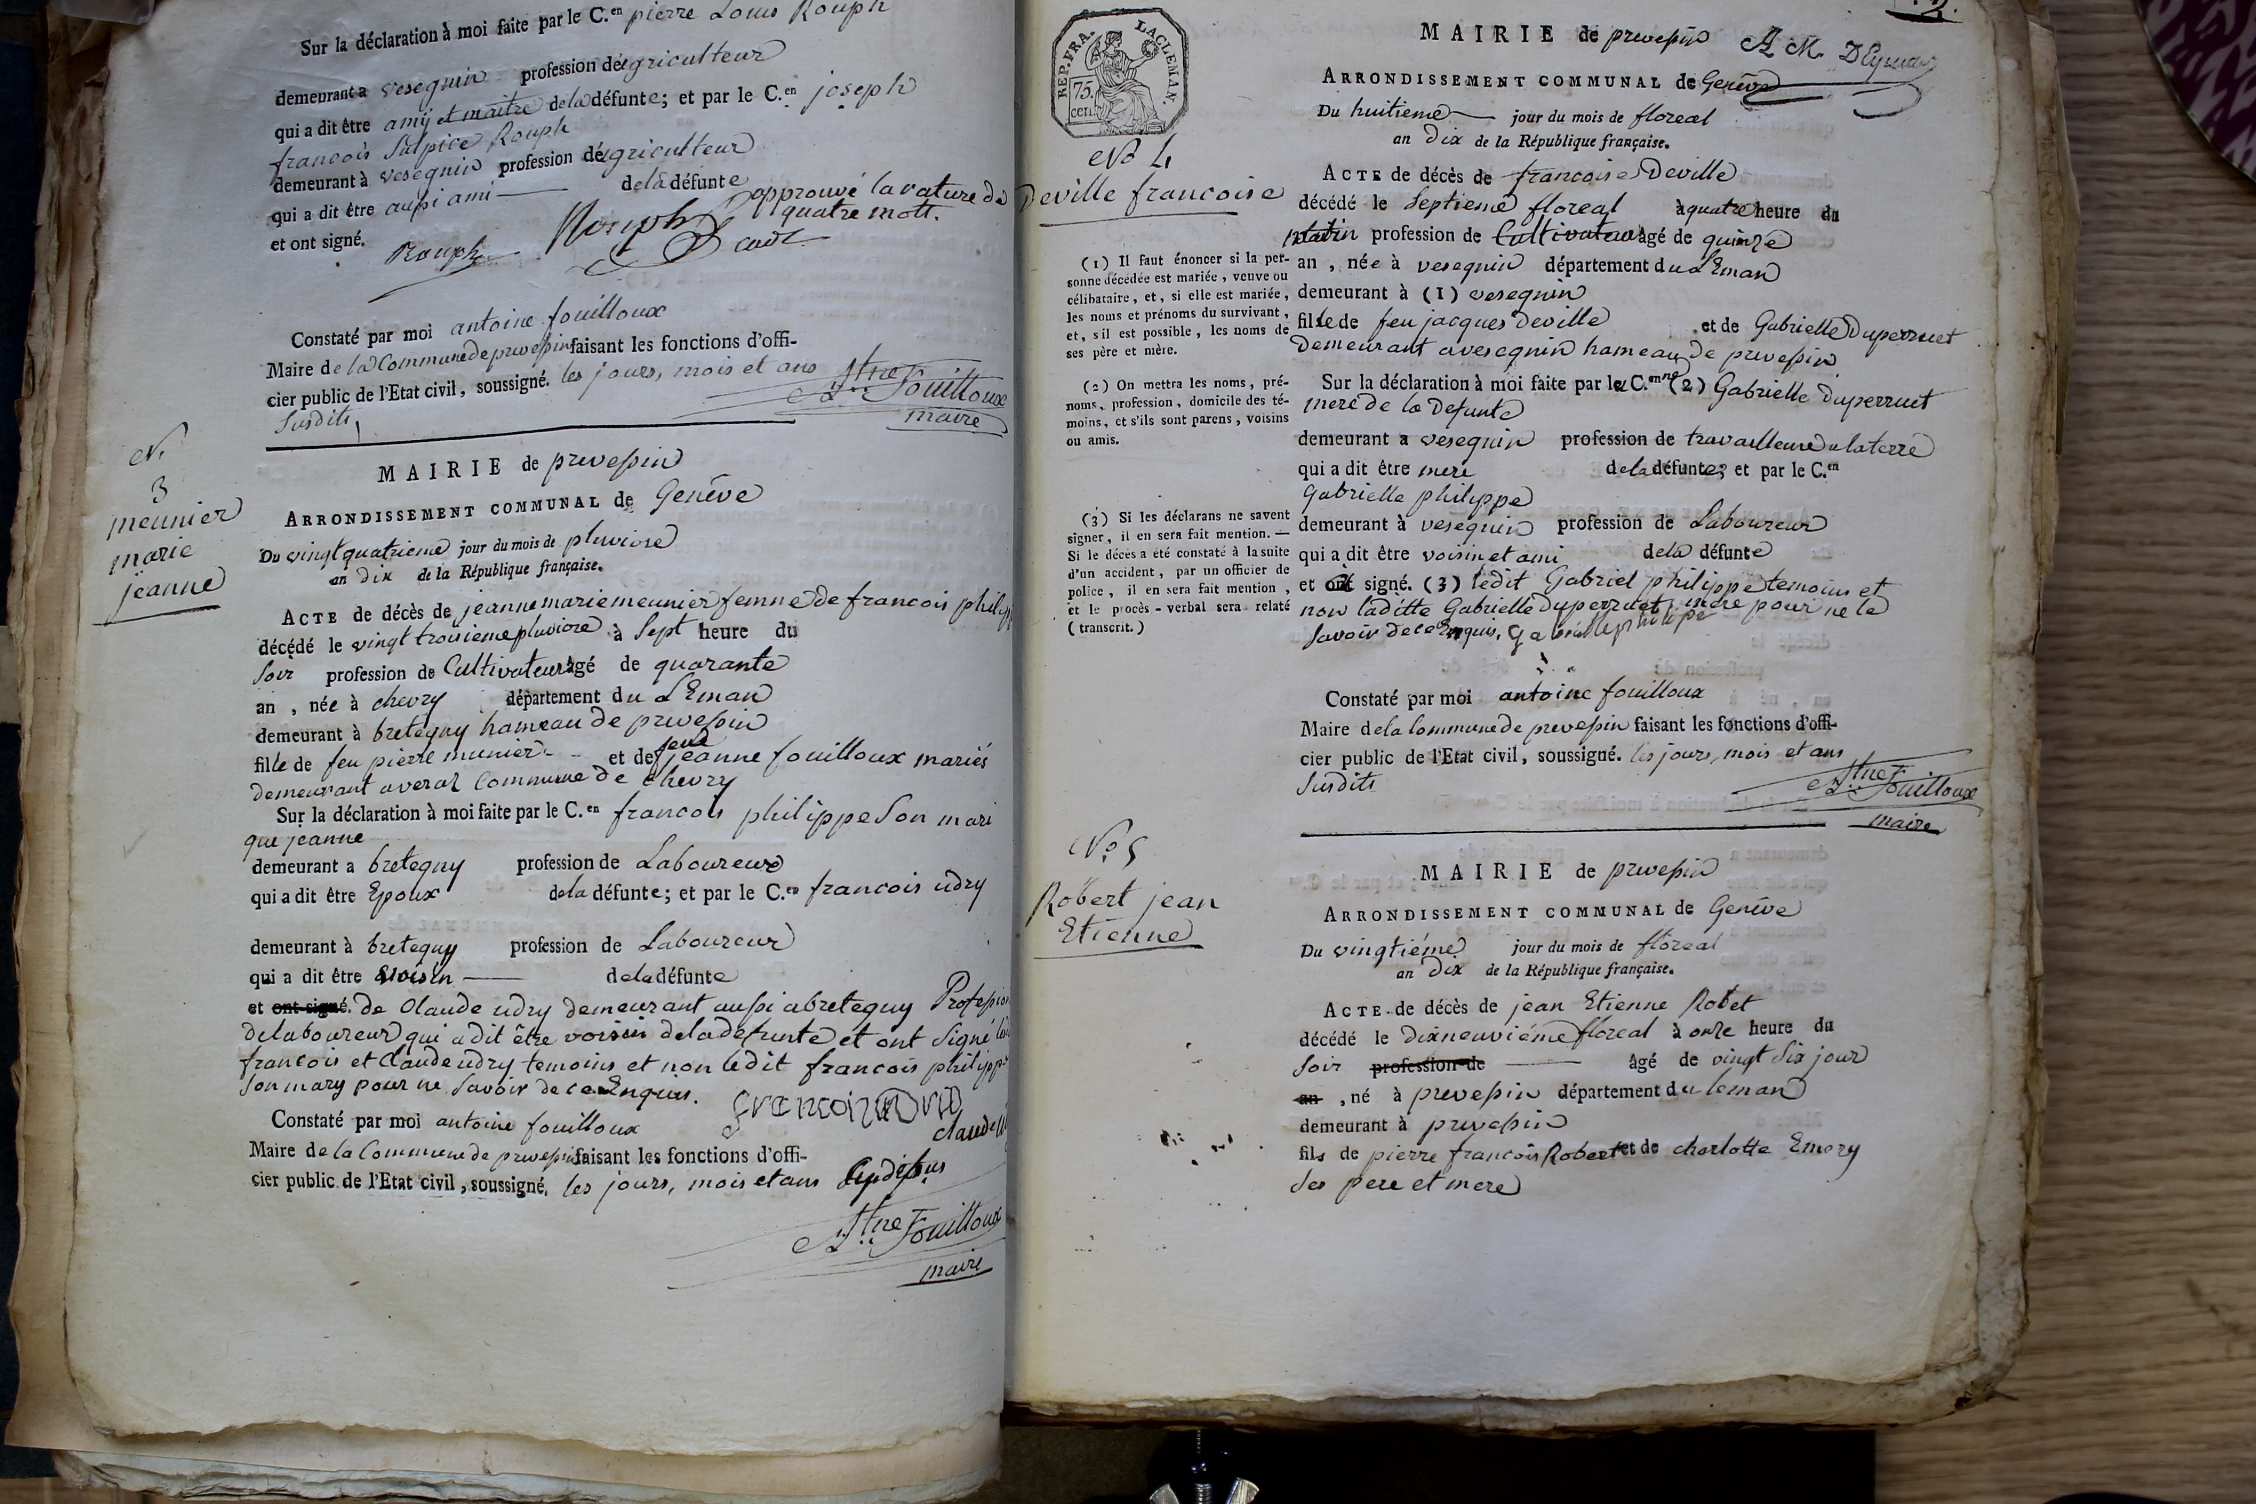 Sur la déclaration à moi faite par le C.en pierre Louis Rouph
demeurant a vesegnin profession de agriculteur
qui a dit être amÿ et maitre de la défunte; et par le C.en joseph
francois Sulpice Rouph
demeurant à vesegnin profession de agriculteur
qui a dit être aussi ami de la défunte
et ont signé. approuvé la rature de
quatre mott.
Rouph Rouph
Constaté par moi antoine fouilloux
Maire de la Commune de prevessin faisant les fonctions d'offi-
cier public de l'Etat civil, soussigné. les jours, mois et ans
Susdits,
Atne Fouilloux
maire
N.
3
meunier
marie
jeanne
MAIRIE de prevessin
ARRONDISSEMENT COMMUNAL de Genêve
Du vingt quatrieme jour du mois de pluviose
an dix de la République française.
ACTE de décès de jeanne marie meunier femme de francois philipp
décédé le vingt troisieme pluviose à Sept heure du
Soir profession de Cultivateur âgé de quarante
an , née à chevry département du LEman
demeurant à bretegny hameau de prevessin
fille de feu pierre munier et de feue jeanne fouilloux mariés
demeurant a veraz Commune de chevry
Sur la déclaration à moi faite par le C.en francois philippe Son mari
que jeanne
demeurant a bretegny profession de Laboureur
qui a dit être Epoux de la défunte; et par le C.en francois udry
demeurant à bretegny profession de Laboureur
qui a dit être voisin de la défunte
et ont signé. de Claude udry demeurant aussi a bretegny Profession
de laboureur qui a dit être voisin de la défunte et ont Signé
francois et Claude udry temoins et non ledit francois philippe
Son mary pour ne Savoir de ce Enquis.
Constaté par moi antoine fouilloux
Maire de la Commune de prevessin faisant les fonctions d'offi-
cier public de l'Etat civil, soussigné, les jours, mois et ans
Atne Fouilloux
maire
2.
REP. FRA. LACLEMAN.
75.
cen.
MAIRIE de prevessin A M. DEymar
ARRONDISSEMENT COMMUNAL de Genêve
Du huitieme jour du mois de floreal
an Dix de la République française.
No 4
Deville francoise
ACTE de décès de francoise Deville
décédé le Septieme floreal à quatre heure du
matin profession de Cultivateur âgé de quinze
an , née à vesegnin département du LEman
demeurant à (1) vesegnin
fille de feu jacques Deville et de Gabrielle Duperruet
Demeurant a vesegnin hameau de prevessin
Sur la déclaration à moi faite par la C.enne (2) Gabrielle Duperruet
mere de la Defunte
demeurant a vesegnin profession de travailleure a la terre
qui a dit être mere de la défunte; et par le C.en
Gabrielle philippe
demeurant à vesegnin profession de Laboureur
qui a dit être voisin et ami de la défunte
et ont signé. (3) ledit Gabriel philippe temoins et
non laditte Gabrielle Duperruet mere pour ne le
Savoir de ce Enquis. gabrielle philipe
(1) Il faut énoncer si la per-
sonne décédée est mariée, veuve ou
célibataire, et, si elle est mariée,
les noms et prénoms du survivant,
et, s'il est possible, les noms de
ses père et mère.
(2) On mettra les noms, pré-
noms, profession, domicile des té-
moins, et s'ils sont parens, voisins
ou amis.
(3) Si les déclarans ne savent
signer, il en sera fait mention. —
Si le décès a été constaté à la suite
d'un accident, par un officier de
police, il en sera fait mention,
et le procès-verbal sera relaté
(transcrit.)
Constaté par moi antoine fouilloux
Maire de la Commune de prevessin faisant les fonctions d'offi-
cier public de l'Etat civil, soussigné. les jours, mois et ans
Susdits
Atne Fouilloux
maire
No. 5
Robert jean
Etienne
MAIRIE de prevessin
ARRONDISSEMENT COMMUNAL de Genêve
Du vingtiéme jour du mois de floreal
an Dix de la République française.
ACTE de décès de jean Etienne Robet
décédé le Dixneuviéme floreal à onze heure du
Soir profession de âgé de vingt Six jour
an , né à prevessin département du leman
demeurant à prevessin
fils de pierre francois Robert et de charlotte Emery
Ses pere et mere